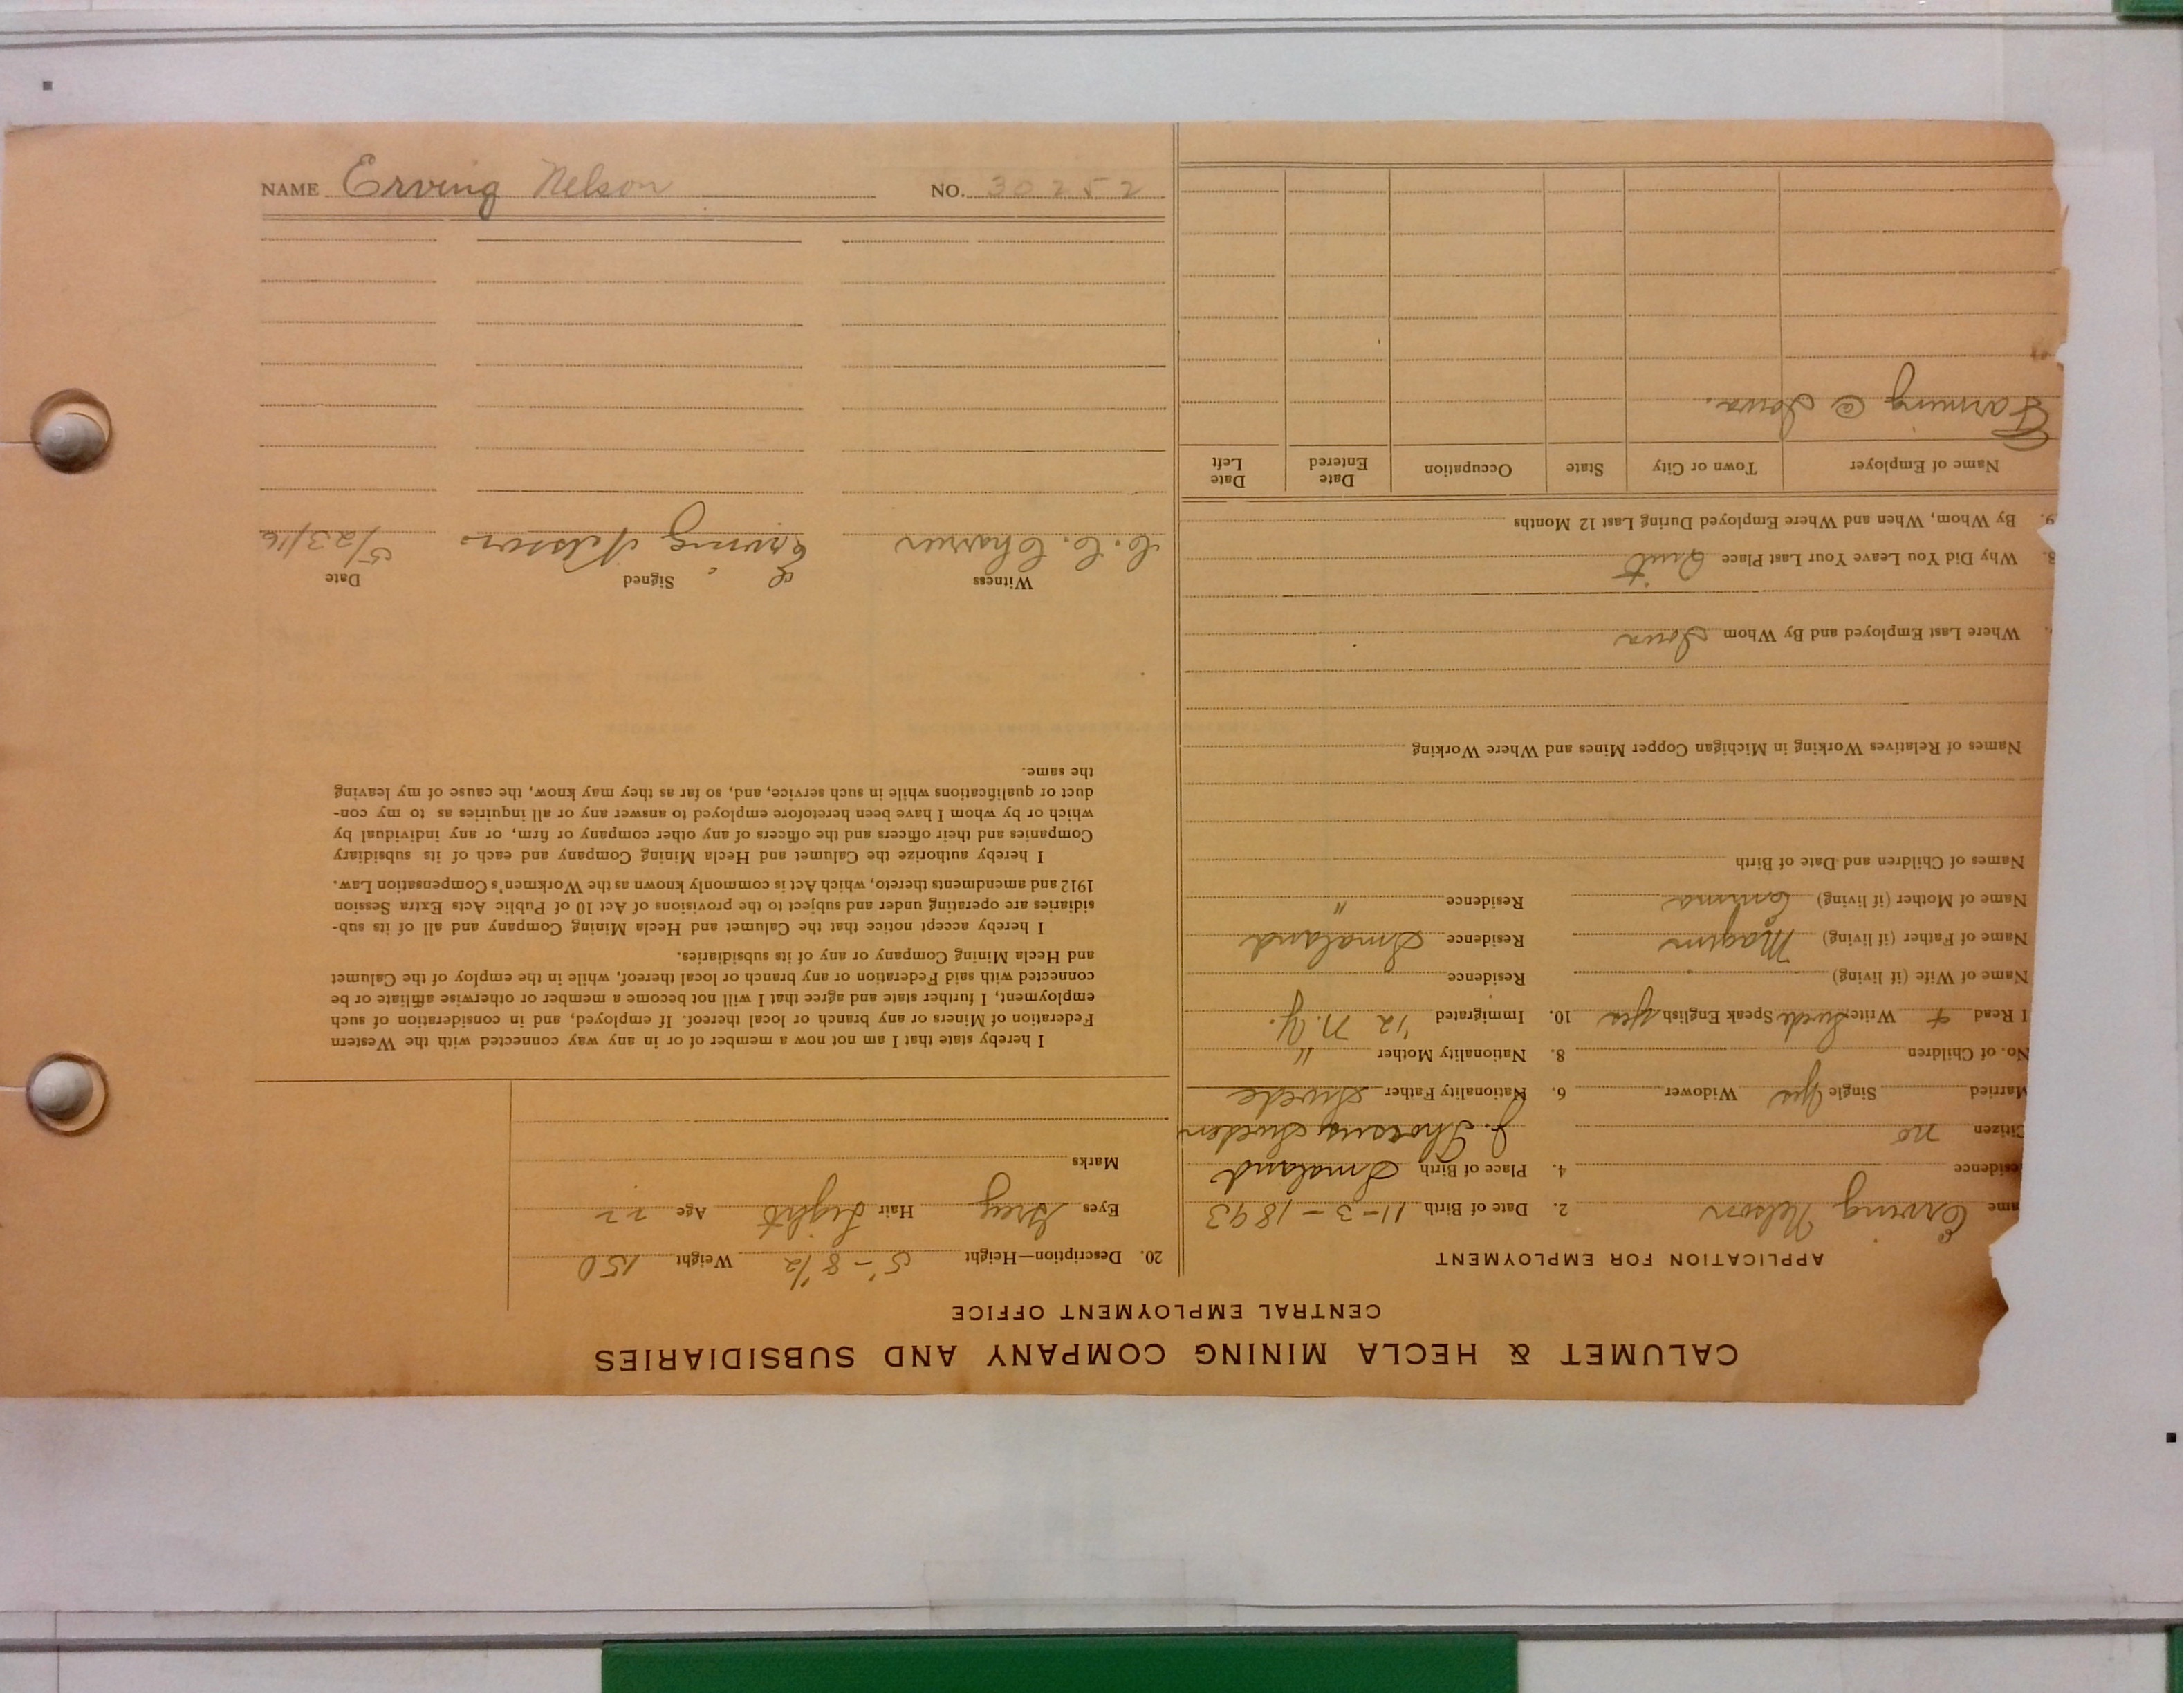 NAME Erving Nelson NO. 30252
CALUMET & HECLA MINING COMPANY AND SUBSIDIARIES
CENTRAL EMPLOYMENT OFFICE
APPLICATION FOR EMPLOYMENT
ame Erving Nelson 2. Date of Birth 11-3-1893
esidence 4. Place of Birth Smaland
Citizen no Sweden
Married Single yes Widower 6. Nationality Father Swede
No. of Children 8. Nationality Mother "
I Read + Write Swede Speak English yes 10. Immigrated '12 N.Y.
Name of Wife (if living) Residence
Name of Father (if living) Residence Smaland
Name of Mother (if living) Emma Residence "
Names of Children and Date of Birth
Names of Relatives Working in Michigan Copper Mines and Where Working
Where Last Employed and By Whom Iowa
8. Why Did You Leave Your Last Place Quit
9. By Whom, When and Where Employed During Last 12 Months
Name of Employer Town or City State Occupation Date Entered Date Left
Farming @ Iowa.
20. Description—Height 5'-8 1/2 Weight 150
Eyes Grey Hair Light Age 22
Marks
I hereby state that I am not now a member of or in any way connected with the Western
Federation of Miners or any branch or local thereof. If employed, and in consideration of such
employment, I further state and agree that I will not become a member or otherwise affiliate or be
connected with said Federation or any branch or local thereof, while in the employ of the Calumet
and Hecla Mining Company or any of its subsidiaries.
I hereby accept notice that the Calumet and Hecla Mining Company and all of its sub-
sidiaries are operating under and subject to the provisions of Act 10 of Public Acts Extra Session
1912 and amendments thereto, which Act is commonly known as the Workmen's Compensation Law.
I hereby authorize the Calumet and Hecla Mining Company and each of its subsidiary
Companies and their officers and the officers of any other company or firm, or any individual by
which or by whom I have been heretofore employed to answer any or all inquiries as to my con-
duct or qualifications while in such service, and, so far as they may know, the cause of my leaving
the same.
Witness Signed Date
C. C. Charrier Erving Nelson 5/23/16